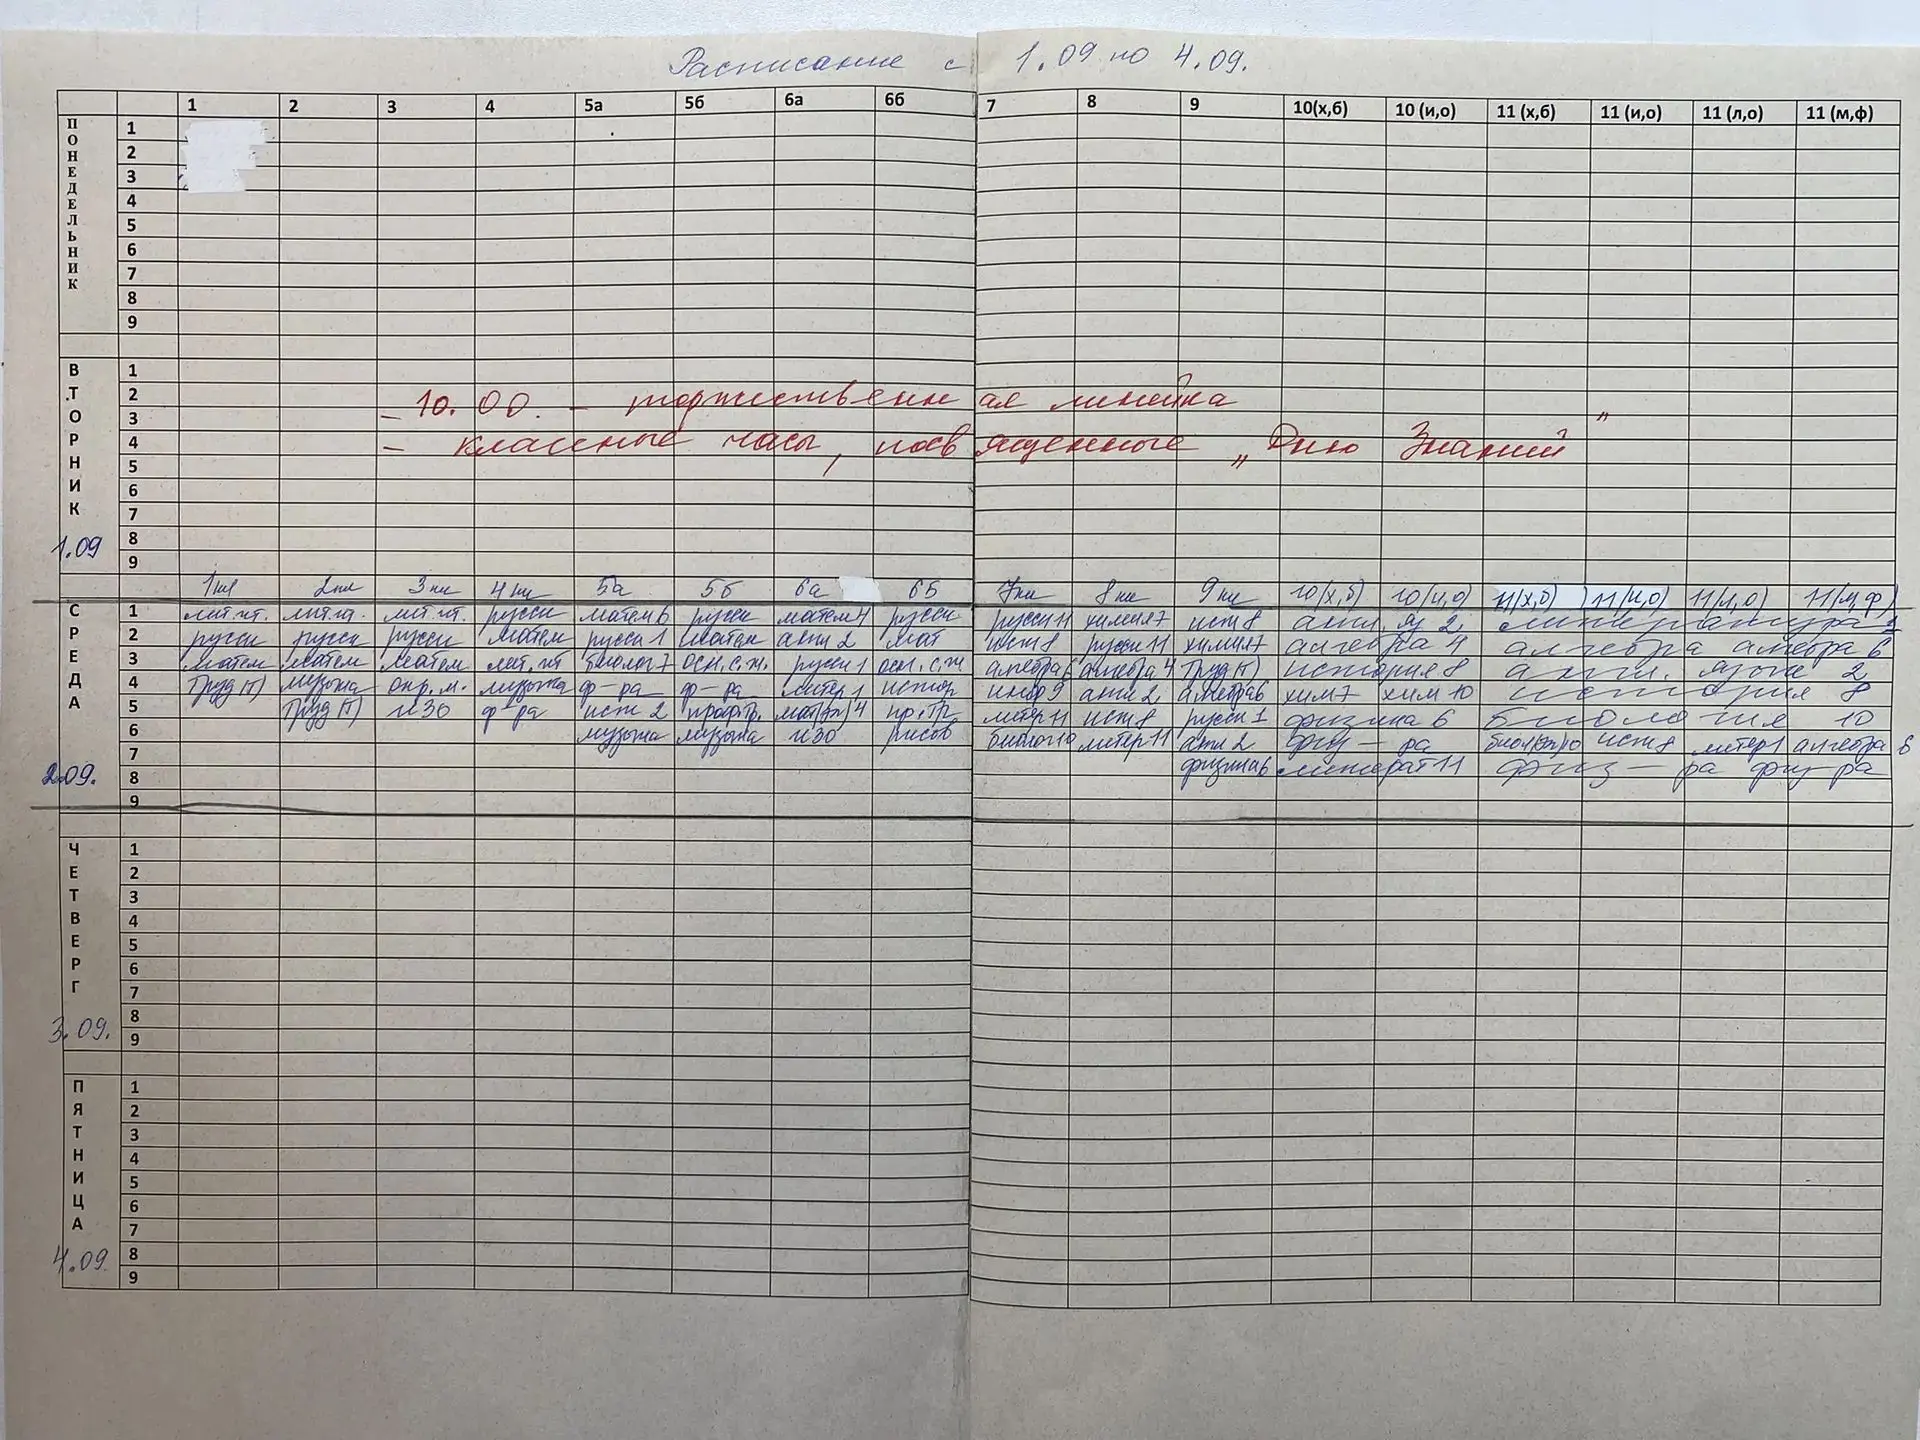 Расписание с 1.09 по 4.09.
1 2 3 4 5а 5б 6а 6б 7 8 9 10(х,б) 10 (и,о) 11 (х,б) 11 (и,о) 11 (л,о) 11 (м,ф)
ПОНЕДЕЛЬНИК
1
2
3
4
5
6
7
8
9
ВТОРНИК
1.09
1
2
- 10.00. - торжественная линейка
3
4
- классные часы, посвященные „Дню Знаний"
5
6
7
8
9
1кл 2кл 3кл 4кл 5а 5б 6а 6б 7кл 8кл 9кл 10(х,б) 10(и,о) 11(х,б) 11(и,о) 11(л,о) 11(м,ф)
СРЕДА
2.09.
1 лит.чт. лит.чт. лит.чт. русск матем 6 русск матем 4 русск русск 11 химия 7 ист 8 англ. яз 2 литература 1
2 русск русск русск матем русск 1 матем англ 2 мат ист 8 русск 11 химия 7 алгебра 4 алгебра алгебра 6
3 матем матем матем лит.чт биолог 7 осн.с.ж. русск 1 осн.с.ж алгебра 6 алгебра 4 Труд(т) история 8 англ. язык 2
4 Труд(т) музыка окр.м. музыка ф-ра ф-ра литер 1 истор инф 9 англ 2 алгебра 6 хим 7 хим 10 история 8
5 Труд(т) ИЗО ф-ра ист 2 пр.тр. литер 11 ист 8 русск 1 физика 6 биология 10
6 музыка музыка ИЗО рисов биолог 10 литер 11 англ 2 физ-ра ист 8 литер 1 алгебра 6
7 физика 6 литерат 11 физ-ра физ-ра
8
9
ЧЕТВЕРГ
3.09.
1
2
3
4
5
6
7
8
9
ПЯТНИЦА
4.09
1
2
3
4
5
6
7
8
9